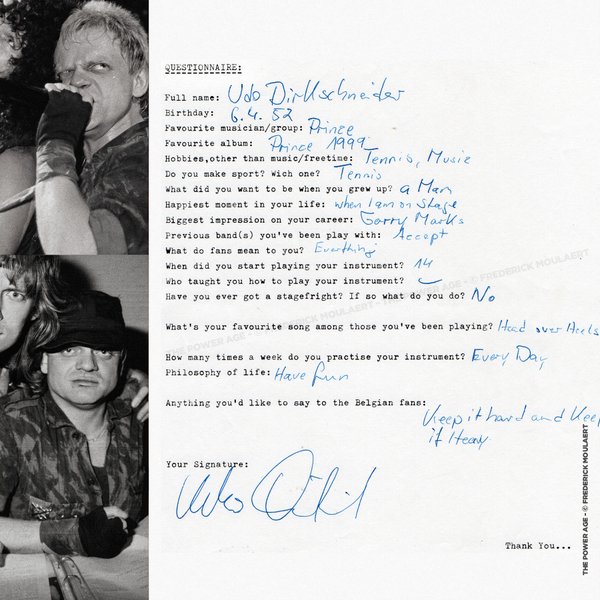 QUESTIONNAIRE:
Full name: Udo Dirkschneider
Birthday: 6.4.52
Favourite musician/group: Prince
Favourite album: Prince 1999
Hobbies,other than music/freetime: Tennis, Music
Do you make sport? Wich one? Tennis
What did you want to be when you grew up? a Man
Happiest moment in your life: when I am on Stage
Biggest impression on your career: Gorry Marks
Previous band(s) you've been play with: Accept
What do fans mean to you? Everything
When did you start playing your instrument? 14
Who taught you how to play your instrument? –
Have you ever got a stagefright? If so what do you do? No
THE POWER AGE - © FREDERICK MOULAERT
What's your favourite song among those you've been playing? Head over Heels
How many times a week do you practise your instrument? Every Day
Philosophy of life: Have fun
Anything you'd like to say to the Belgian fans:
Keep it hard and Keep
it Heavy
Your Signature:
Udo Dirk
Thank You...
THE POWER AGE - © FREDERICK MOULAERT